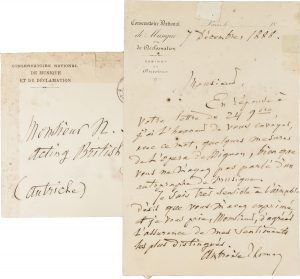 CONSERVATOIRE NATIONAL
DE MUSIQUE
ET DE DÉCLAMATION
Monsieur N.
acting British
(autriche)
Conservatoire National
de Musique
et de Déclamation
7 Décembre, 1888.
Monsieur,
En réponse à
votre lettre du 24 9bre
j'ai l'honneur de vous envoyer,
avec ce mot, quelques mesures
de l'Opéra de Mignon, bien que
vous ne m'ayez pas parlé d'un
autographe de musique.
Je suis très sensible à l'aimable
désir que vous m'avez exprimé
et je vous prie, Monsieur, d'agréer
l'assurance de mes sentiments
les plus distingués
Ambroise Thomas